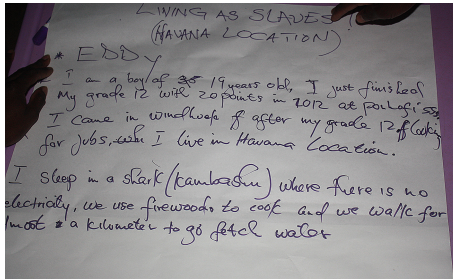 LIVING AS SLAVES!
(HAVANA LOCATION)
* EDDY
I am a boy of 19 years old, I just finished
My grade 12 with 20 points in 2012 at
I came in windhoek after my grade 12 looking
for jobs, I live in Havana Location.
I sleep in a shark (kambashu) where there is no
electricity, we use firewoods to cook and we walk for
lmost a kilometer to go fetch water